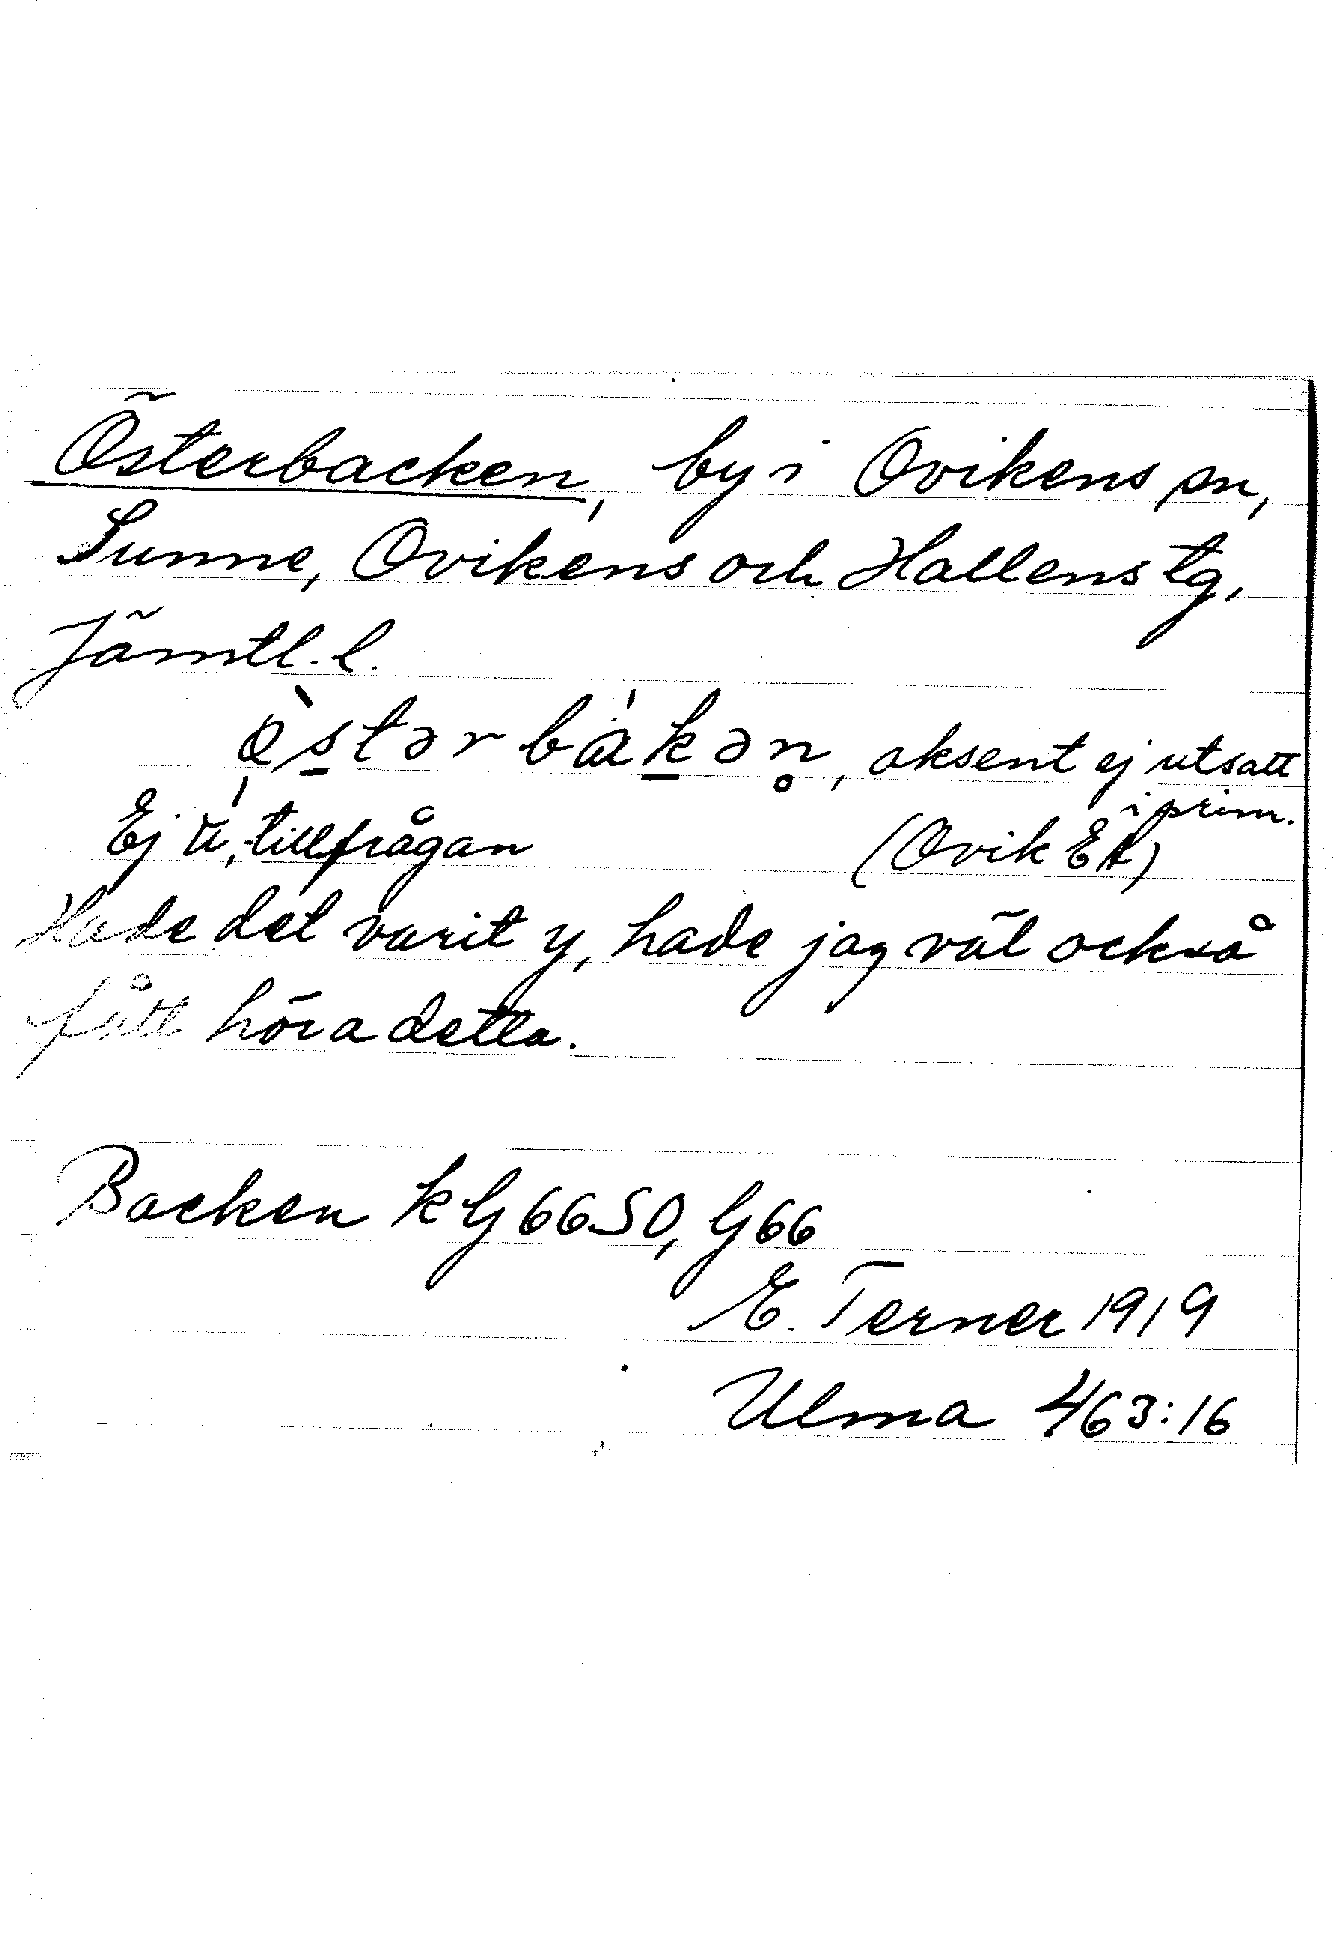 Österbacken, by i Ovikens sn,
Sunne, Ovikens och Hallens tg,
Jämtl. l.
ö̀stər bákən̥, aksent ej utsatt
i prim.
Ej ü, tillfrågan (Ovik EA)
Hade det varit y, hade jag väl också
fått höra detta.
Backen k G 66 SO, G 66
E. Terner 1919
Ulma 463:16